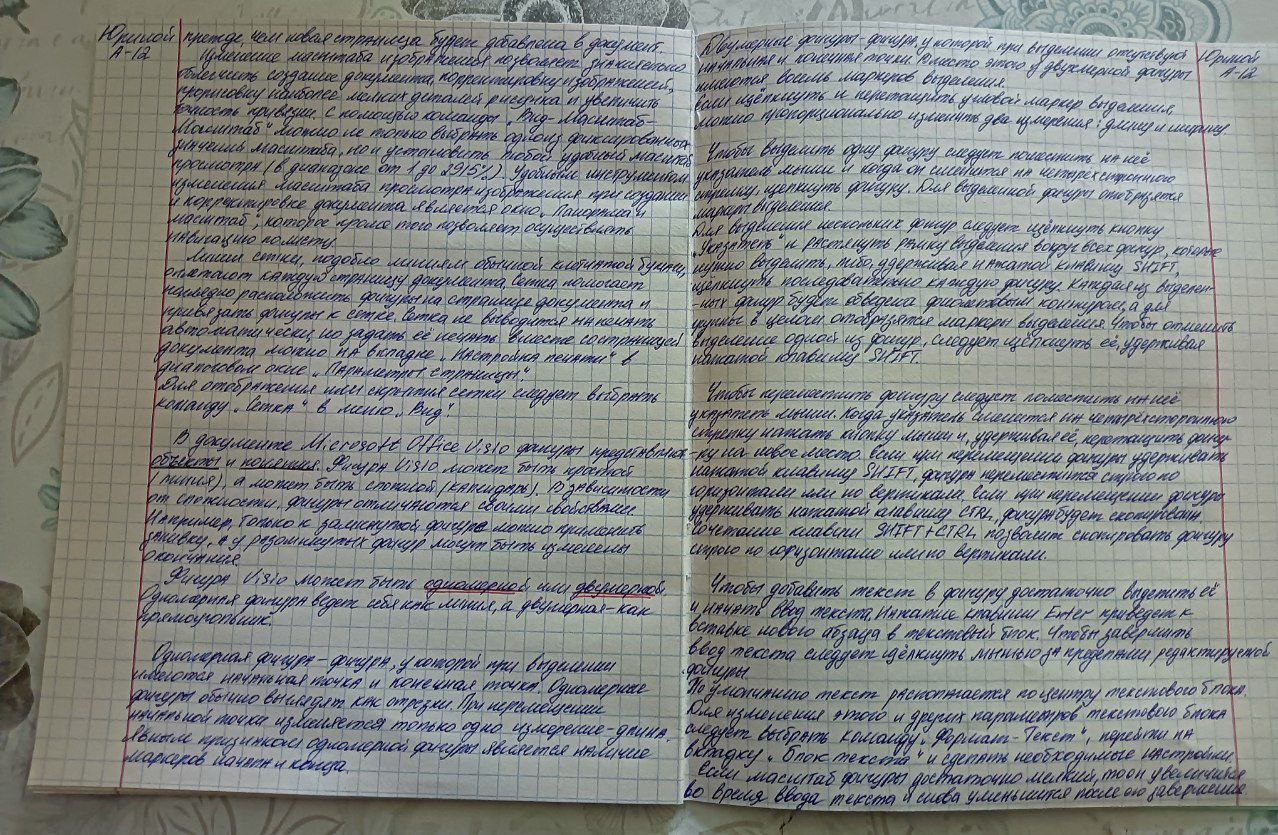 Юрмой
А-12
прежде, чем новая страница будет добавлена в документ.
Изменение масштаба изображения позволяет значительно
облегчить создание документа, корректировку изображений,
прорисовку наиболее мелких деталей рисунка и увеличить
точность привязки. С помощью команды „Вид-Масштаб-
Масштаб" можно не только выбрать одно из фиксированных
значений масштаба, но и установить любой удобный масштаб
просмотра (в диапазоне от 1 до 2915%). Удобным инструментом
изменения масштаба просмотра изображения при создании
и корректировке документа является окно „Панорама и
масштаб", которое кроме того позволяет осуществлять
навигацию по листу.
Линии сетки, подобно линиям обычной клетчатой бумаги,
оплетают каждую страницу документа. Сетка помогает
наглядно расположить фигуры на странице документа и
привязать фигуры к сетке. Сетка не выводится на печать
автоматически, но задать её печать вместе со страницей
документа можно на вкладке „Настройка печати" в
диалоговом окне „Параметры страницы".
Для отображения или скрытия сетки следует выбрать
команду „Сетка" в меню „Вид".
В документе Microsoft Office Visio фигуры представляют
объекты и понятия. Фигура Visio может быть простой
(линия), а может быть сложной (календарь). В зависимости
от сложности фигуры отличаются своими свойствами.
Например, только к замкнутой фигуре можно применить
заливку, а у разомкнутых фигур могут быть изменены
окончания.
Фигура Visio может быть одномерной или двумерной.
Одномерная фигура ведет себя как линия, а двумерная - как
прямоугольник.
Одномерная фигура - фигура, у которой при выделении
имеются начальная точка и конечная точка. Одномерные
фигуры обычно выглядят как отрезки. При перемещении
начальной точки изменяется только одно измерение - длина.
Явным признаком одномерной фигуры является наличие
маркеров начала и конца.
Двумерные фигуры - фигура, у которой при выделении отсутствуют
начальная и конечная точки. Вместо этого у двухмерной фигуры
имеются восемь маркеров выделения.
Если щёлкнуть и перетащить угловой маркер выделения,
можно пропорционально изменить два измерения: длину и ширину.
Юрмой
А-12
Чтобы выделить одну фигуру следует поместить на неё
указатель мыши и когда он сменится на четырёхстороннюю
стрелку, щёлкнуть фигуру. Для выделенной фигуры отобразятся
маркеры выделения.
Для выделения нескольких фигур следует щёлкнуть кнопку
„Указатель" и растянуть рамку выделения вокруг всех фигур, которые
нужно выделить, либо, удерживая нажатой клавишу SHIFT,
щёлкнуть последовательно каждую фигуру. Каждая из выделен-
-ных фигур будет обведена фиолетовым контуром, а для
группы в целом отобразятся маркеры выделения. Чтобы отменить
выделение одной из фигур, следует щёлкнуть её, удерживая
нажатой клавишу SHIFT.
Чтобы переместить фигуру следует поместить на неё
указатель мыши. Когда указатель сменится на четырёхстороннюю
стрелку нажать кнопку мыши и, удерживая её, перетащить фигу-
-ру на новое место. Если при перемещении фигуры удерживать
нажатой клавишу SHIFT, фигура переместится строго по
горизонтали или по вертикали. Если при перемещении фигуры
удерживать нажатой клавишу CTRL, фигура будет скопирована.
Сочетание клавиш SHIFT+CTRL позволит скопировать фигуру
строго по горизонтали или по вертикали.
Чтобы добавить текст в фигуру достаточно выделить её
и начать ввод текста. Нажатие клавиши Enter приведет к
вставке нового абзаца в текстовый блок. Чтобы завершить
ввод текста следует щёлкнуть мышью за пределами редактируемой
фигуры.
По умолчанию текст располагается по центру текстового блока.
Для изменения этого и других параметров текстового блока
следует выбрать команду „Формат-Текст", перейти на
вкладку „Блок текста" и сделать необходимые настройки.
Если масштаб фигуры достаточно мелкий, то он увеличится
во время ввода текста и снова уменьшится после его завершения.